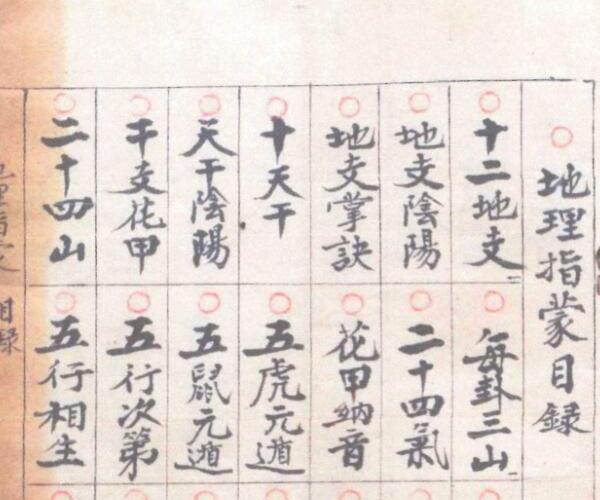 地理指蒙目録
十二地支
地支陰陽
地支掌訣
十天干
天干陰陽
干支花甲
二十四山
每卦三山
二十四氣
花甲納音
五虎元遁
五鼠元遁
五行次第
五行相生
地理指蒙 目録